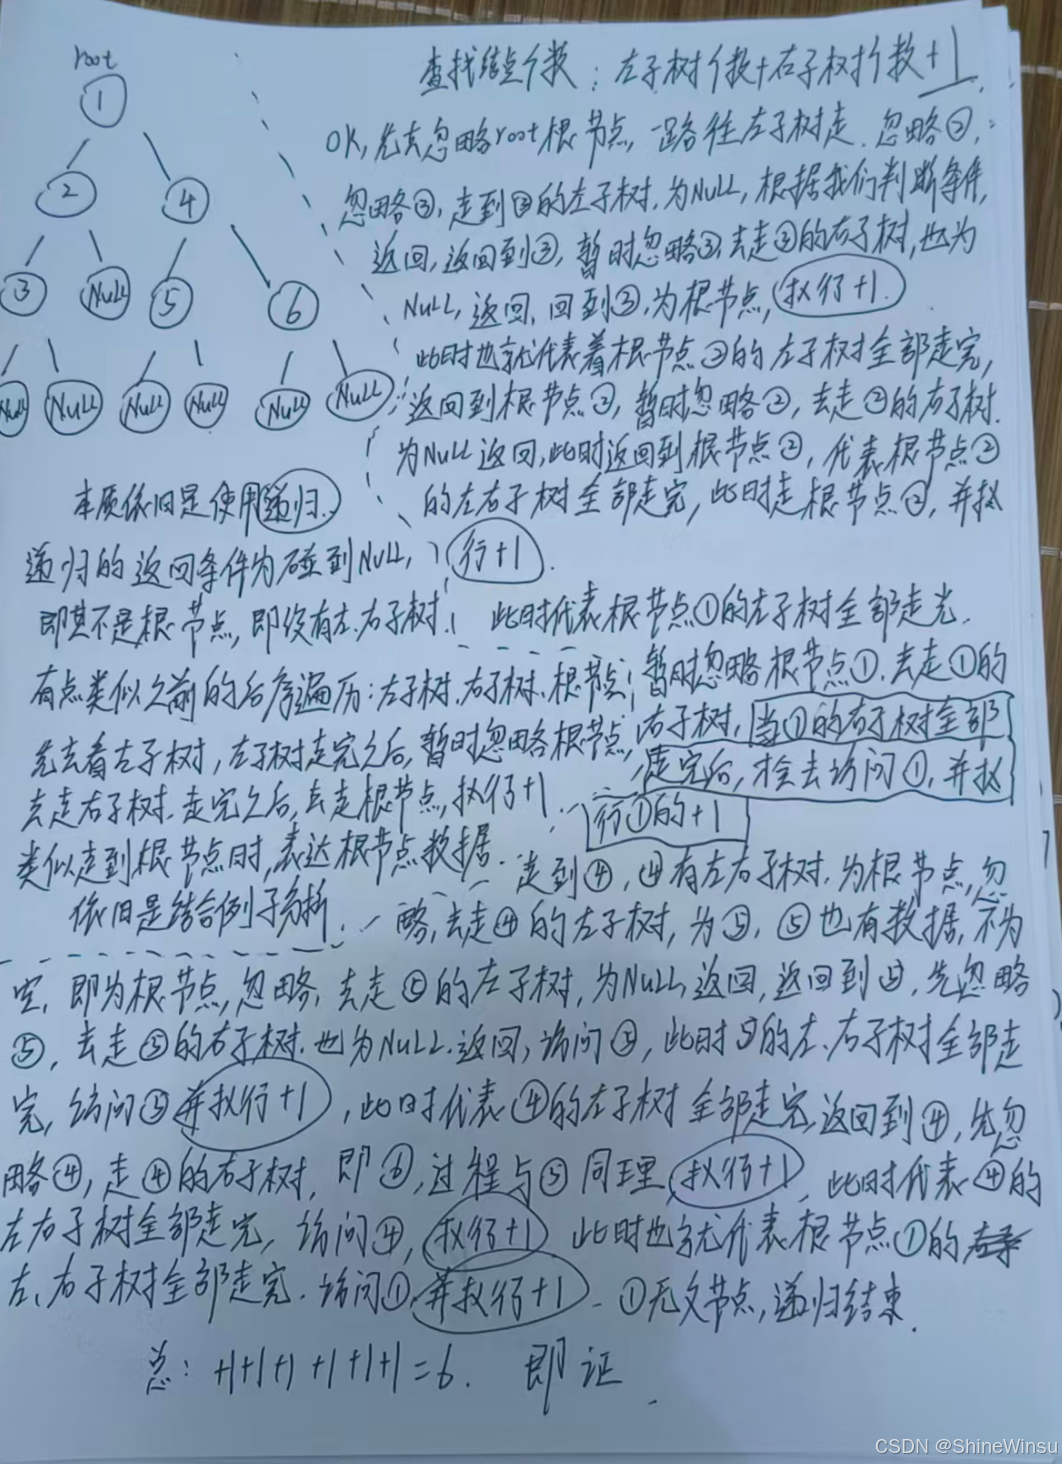 root
1
2
4
3
Null
5
6
Null
Null
Null
Null
Null
Null
查找结点个数：左子树个数+右子树个数+1
OK,先去忽略root根节点,一路往左子树走.忽略②,
忽略③,走到③的左子树,为Null,根据我们判断条件,
返回,返回到③,暂时忽略③,去走③的右子树,也为
Null,返回,回到③,为根节点,执行+1.
此时也就代表着根节点②的左子树全部走完,
返回到根节点②,暂时忽略②,去走②的右子树.
为Null返回,此时返回到根节点②,代表根节点②
的左右子树全部走完,此时走根节点②,并执
行+1.
此时代表根节点①的左子树全部走完.
暂时忽略根节点①.去走①的
右子树,当①的右子树全部
走完后,才会去访问①,并执
行①的+1
本质依旧是使用递归.
递归的返回条件为碰到Null,
即其不是根节点,即没有左.右子树.
有点类似之前的后序遍历:左子树.右子树.根节点;
先去看左子树,左子树走完之后,暂时忽略根节点,
去走右子树.走完之后,去走根节点,执行+1.
类似走到根节点时,表达根节点数据.
依旧是结合例子分析.
走到④,④有左右子树.为根节点,忽
略,去走④的左子树,为⑤,⑤也有数据,不为
空,即为根节点,忽略,去走⑤的左子树,为Null,返回,返回到⑤,先忽略
⑤,去走⑤的右子树.也为Null.返回,访问⑤,此时5的左.右子树全部走
完,访问⑤并执行+1,此时代表④的左子树全部走完,返回到④,先忽
略④,走④的右子树,即⑥,过程与⑤同理,执行+1,此时代表④的
左右子树全部走完,访问④,执行+1 此时也就代表根节点①的
左、右子树全部走完.访问①,并执行+1-①无父节点,递归结束.
总:+1+1+1+1+1+1=6.即证.
CSDN @ShineWinsu